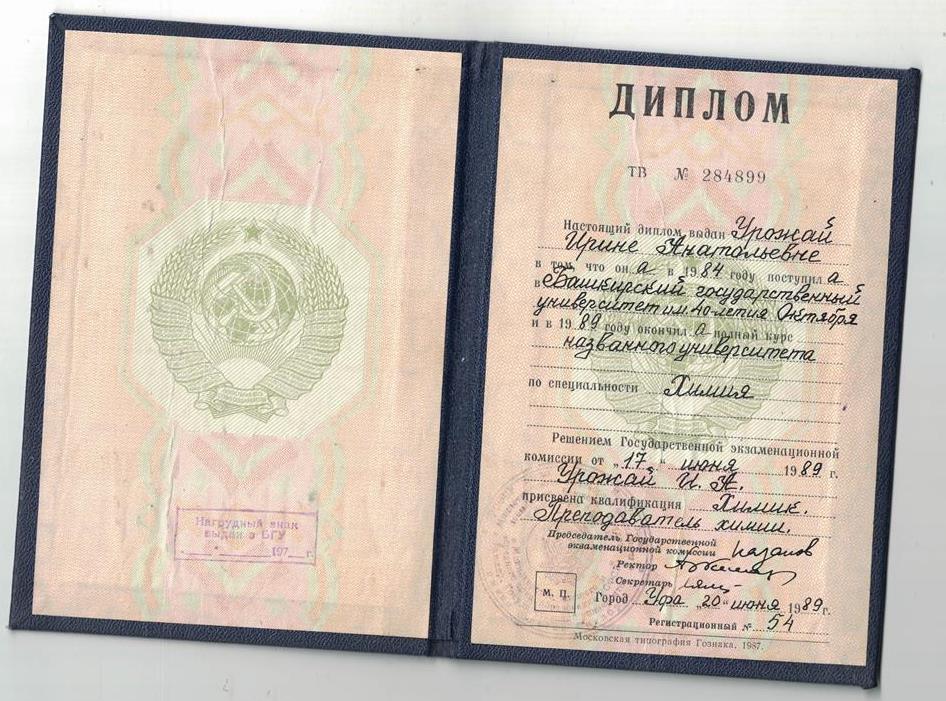 Нагрудный знак
выдан в БГУ
197 г.
ДИПЛОМ
ТВ № 284899
Настоящий диплом выдан Урожай
Ирине Анатольевне
в том, что он а в 1984 году поступил а
в Башкирский государственный
университет им. 40-летия Октября
и в 1989 году окончил а полный курс
названного университета
по специальности Химия
Решением Государственной экзаменационной
комиссии от „17“ июня 1989 г.
Урожай И. А.
присвоена квалификация Химик.
Преподаватель химии.
Председатель Государственной
экзаменационной комиссии
Ректор
Секретарь
М. П.
Город Уфа „20“ июня 1989 г.
Регистрационный № 54
Московская типография Гознака. 1987.